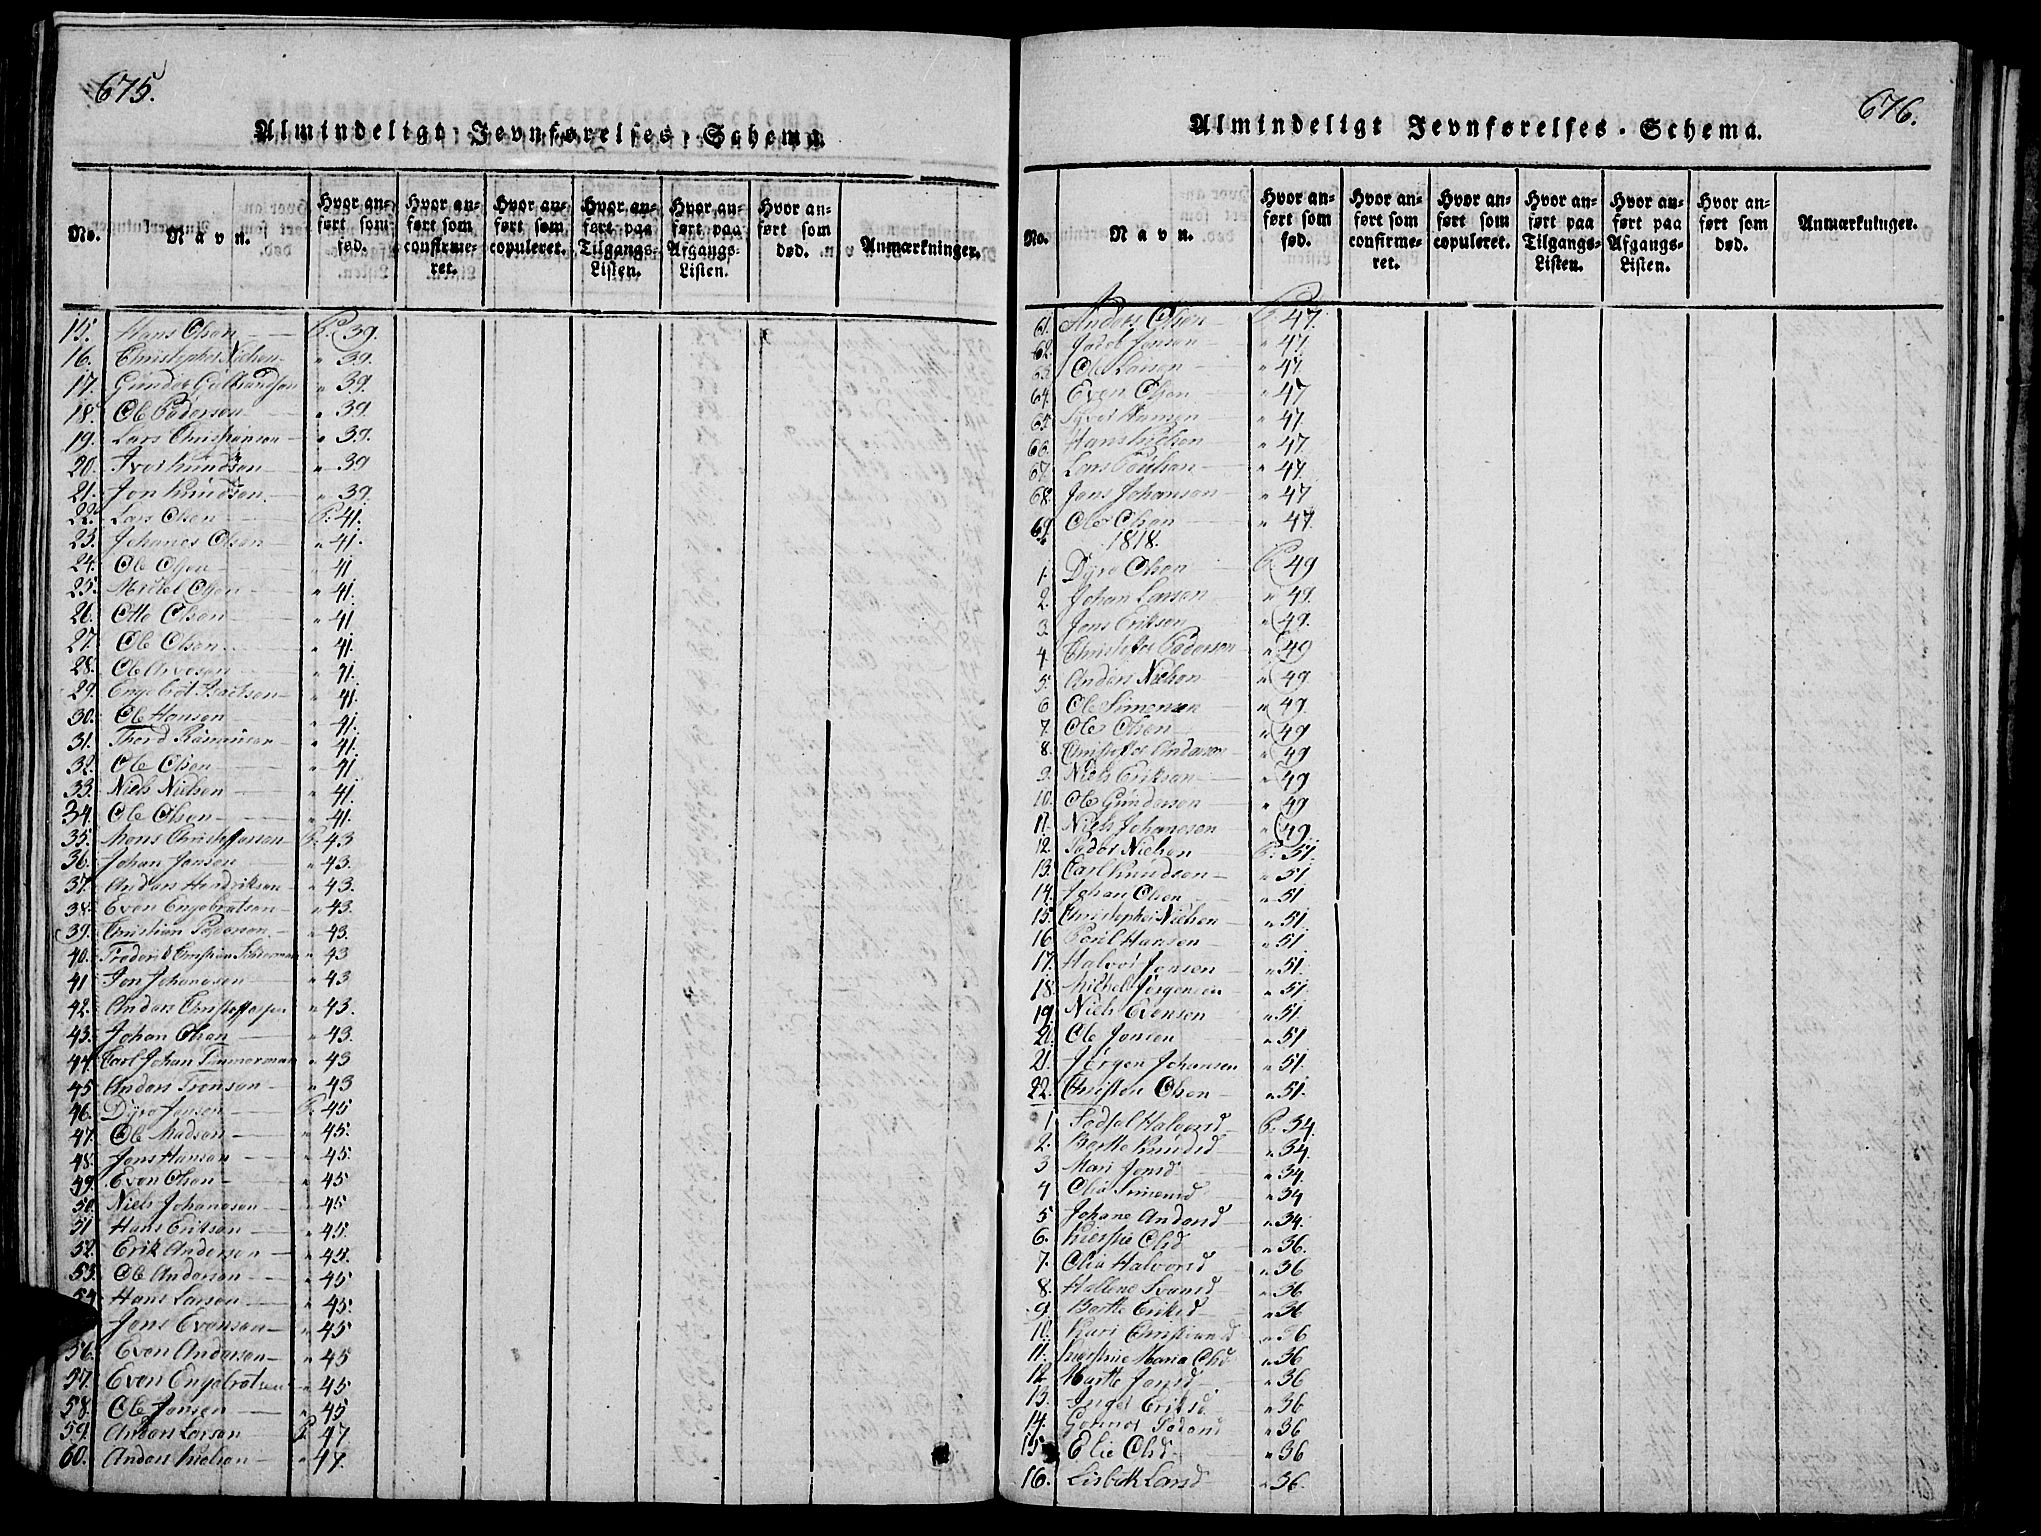 675.
Almindeligt Jevnførelses-Schema.
No.
Navn.
Hvor anført som fød.
Hvor anført som confirmeret.
Hvor anført som copuleret.
Hvor anført paa Tilgangs-Listen.
Hvor anført paa Afgangs-Listen.
Hvor anført som død.
Anmærkninger.
15. Hans Olsen P. 39.
16. Christopher Nielsen " 39.
17. Gunder Gulbrandsen " 39.
18. Ole Pedersen " 39
19. Lars Christiansen " 39.
20. Iver Knudsen " 39
21. Jon Knudsen " 39.
22. Lars Olsen P. 41.
23. Johanes Olsen " 41.
24. Ole Olsen " 41
25. Mickel Olsen " 41.
26. Otto Olsen " 41
27. Ole Olsen " 41.
28. Ole " 41.
29. Engebret " 41.
30. Ole Hansen " 41.
31. Thord " 41.
32. Ole Olsen " 41
33. Niels Nielsen " 41.
34. Ole Olsen " 41.
35. Mons Christoffersen P. 43
36. Johan Jensen " 43.
37. Anders Hendriksen " 43.
38. Even Engebretsen " 43.
39. Christian Pedersen " 43.
40. Frederik Christian " 43
41 Jon Johanesen " 43
42. Anders Christoffersen " 43.
43. Johan Olsen " 43.
44. Carl Johan Timmerman " 43
45 Anders Tronsen " 43
46. Dyre Jensen P. 45
47. Ole Madsen " 45.
48. Jens Hansen " 45
49. Even Olsen " 45
50. Niels Johanesen " 45
51 Hans Eriksen " 45.
52. Erik Andersen " 45.
53. Ole Andersen " 45
54 Hans Larsen " 45.
Jens Evensen " 45
56. Even Andersen " 45
57. Even Engebretsen " 45
58. Ole Jensen " 45
59. Anders Larsen P. 47
60. Anders Nielsen " 47.
676.
Almindeligt Jevnførelses-Schema.
No.
Navn.
Hvor anført som fød.
Hvor anført som confirmeret.
Hvor anført som copuleret.
Hvor anført paa Tilgangs-Listen.
Hvor anført paa Afgangs-Listen.
Hvor anført som død.
Anmærkninger.
61. Anders Olsen P. 47.
62. Jacob Jensen " 47
63. Ole Larsen " 47.
64. Even Olsen " 47
65. " 47.
66. Hans Nielsen " 47
67. Lars Poulsen " 47.
68. Jens Johansen " 47
69. Ole Olsen " 47.
1818.
1. Dyre Olsen P. 49
2. Johan Larsen " 49.
3. Jens Eriksen " 49.
4. Christoffer Pedersen " 49
5. Anders Nielsen " 49
6 Ole Simensen " 49.
7. Ole Olsen " 49
8. Christoffer Andersen " 49
9. Niels Eriksen " 49
10. Ole Gundersen " 49
11. Niels Johanesen " 49.
12. Peder Nielsen P. 51.
13. Carl Knudsen " 51
14. Johan Olsen " 51
15. Christopher Nielsen " 51.
16. Poul Hansen " 51
17. Halvor Jensen " 51.
18. Mickel Jörgensen " 51.
19. Niels Evensen " 51.
20. Ole Jonsen " 51
21. Jörgen Johansen " 51.
22. Christen Olsen " 51.
1 Halvorsd P. 34.
2. Berthe Knudsd " 34.
3 Mari Jensd " 34.
4 Olia Simensd " 34
5 Johane Andersd " 34.
6. Kierstie Olsd " 36.
7. Olia Halvorsd " 36
8. Hellene Svensd " 36
9. Berthe Eriksd " 36
10. Kari Christiansd " 36
11. Kierstine Maria Olsd " 36
12. Marthe Jensd " 36
13. Inger Eriksd " 36
14. Gunnor Pedersd " 36
15 Elie Olsd " 36
16. Lisbeth Larsd " 36.